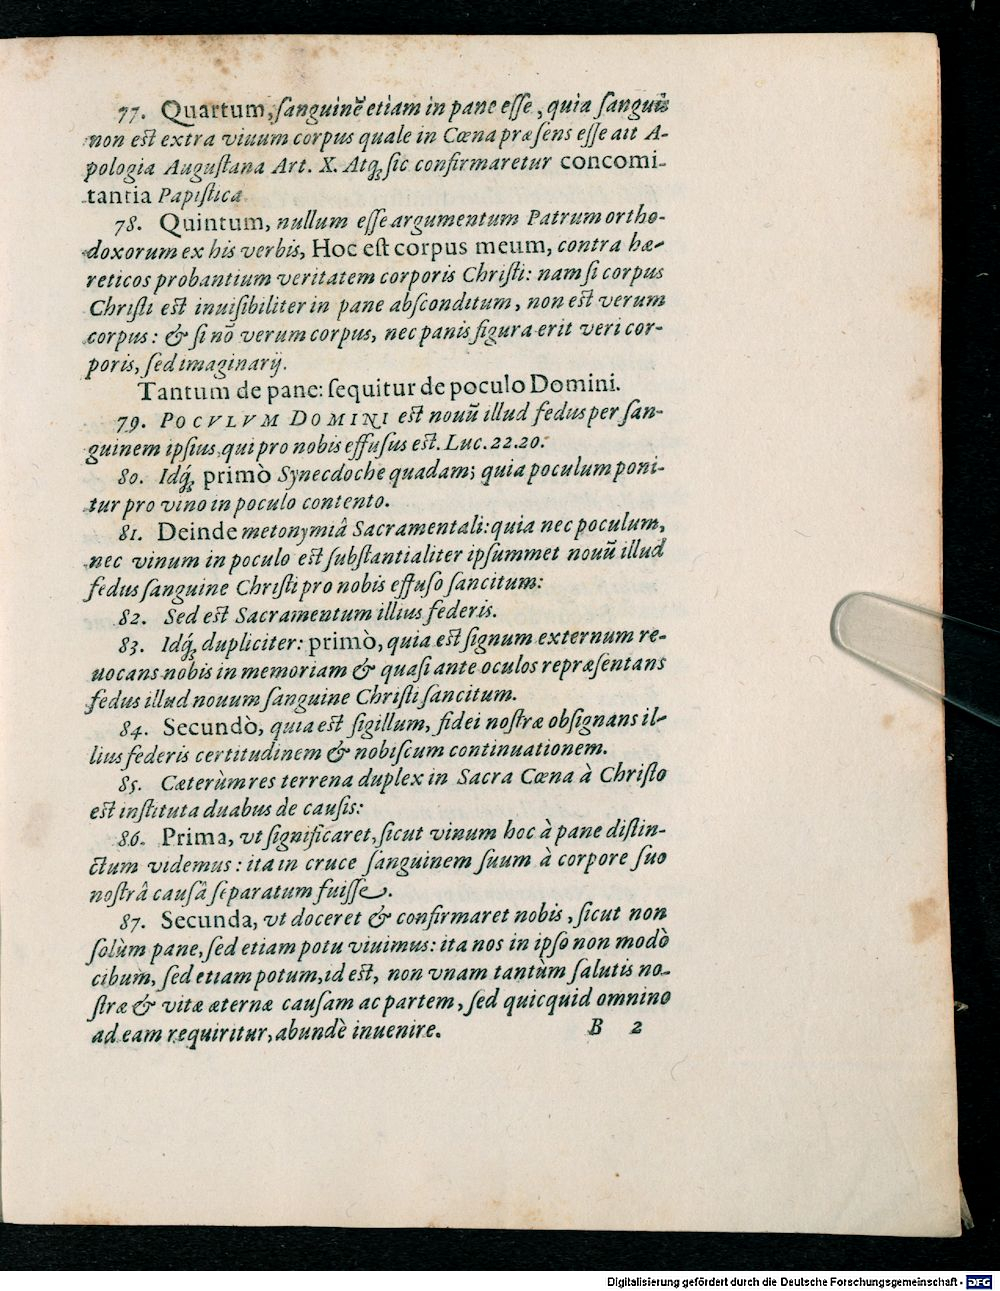 77. Quartum, ſanguinē etiam in pane eſſe, quia ſanguis
non eſt extra viuum corpus quale in Cœna præſens eſſe ait A-
pologia Auguſtana Art. X. Atq; ſic confirmaretur concomi-
tantia Papiſtica
78. Quintum, nullum eſſe argumentum Patrum ortho-
doxorum ex his verbis, Hoc eſt corpus meum, contra hæ-
reticos probantium veritatem corporis Chriſti: nam ſi corpus
Chriſti eſt inuiſibiliter in pane abſconditum, non eſt verum
corpus: & ſi nō verum corpus, nec panis figura erit veri cor-
poris, ſed imaginarij.
Tantum de pane: ſequitur de poculo Domini.
79. POCVLVM DOMINI eſt nouū illud fedus per ſan-
guinem ipſius, qui pro nobis effuſus eſt. Luc. 22. 20.
80. Idq; primò Synecdoche quadam; quia poculum poni-
tur pro vino in poculo contento.
81. Deinde metonymiâ Sacramentali: quia nec poculum,
nec vinum in poculo eſt ſubſtantialiter ipſummet nouū illud
fedus ſanguine Chriſti pro nobis effuſo ſancitum:
82. Sed eſt Sacramentum illius federis.
83. Idq; dupliciter: primò, quia eſt ſignum externum re-
uocans nobis in memoriam & quaſi ante oculos repræſentans
fedus illud nouum ſanguine Chriſti ſancitum.
84. Secundò, quia eſt ſigillum, fidei noſtræ obſignans il-
lius federis certitudinem & nobiſcum continuationem.
85. Cæterùm res terrena duplex in Sacra Cœna à Chriſto
eſt inſtituta duabus de cauſis:
86. Prima, vt ſignificaret, ſicut vinum hoc à pane diſtin-
ctum videmus: ita in cruce ſanguinem ſuum à corpore ſuo
noſtrâ cauſâ ſeparatum fuiſſe.
87. Secunda, vt doceret & confirmaret nobis, ſicut non
ſolùm pane, ſed etiam potu viuimus: ita nos in ipſo non modò
cibum, ſed etiam potum, id eſt, non vnam tantùm ſalutis no-
ſtræ & vitæ æternæ cauſam ac partem, ſed quicquid omnino
ad eam requiritur, abundè inuenire.
B 2
Digitalisierung gefördert durch die Deutsche Forschungsgemeinschaft - DFG